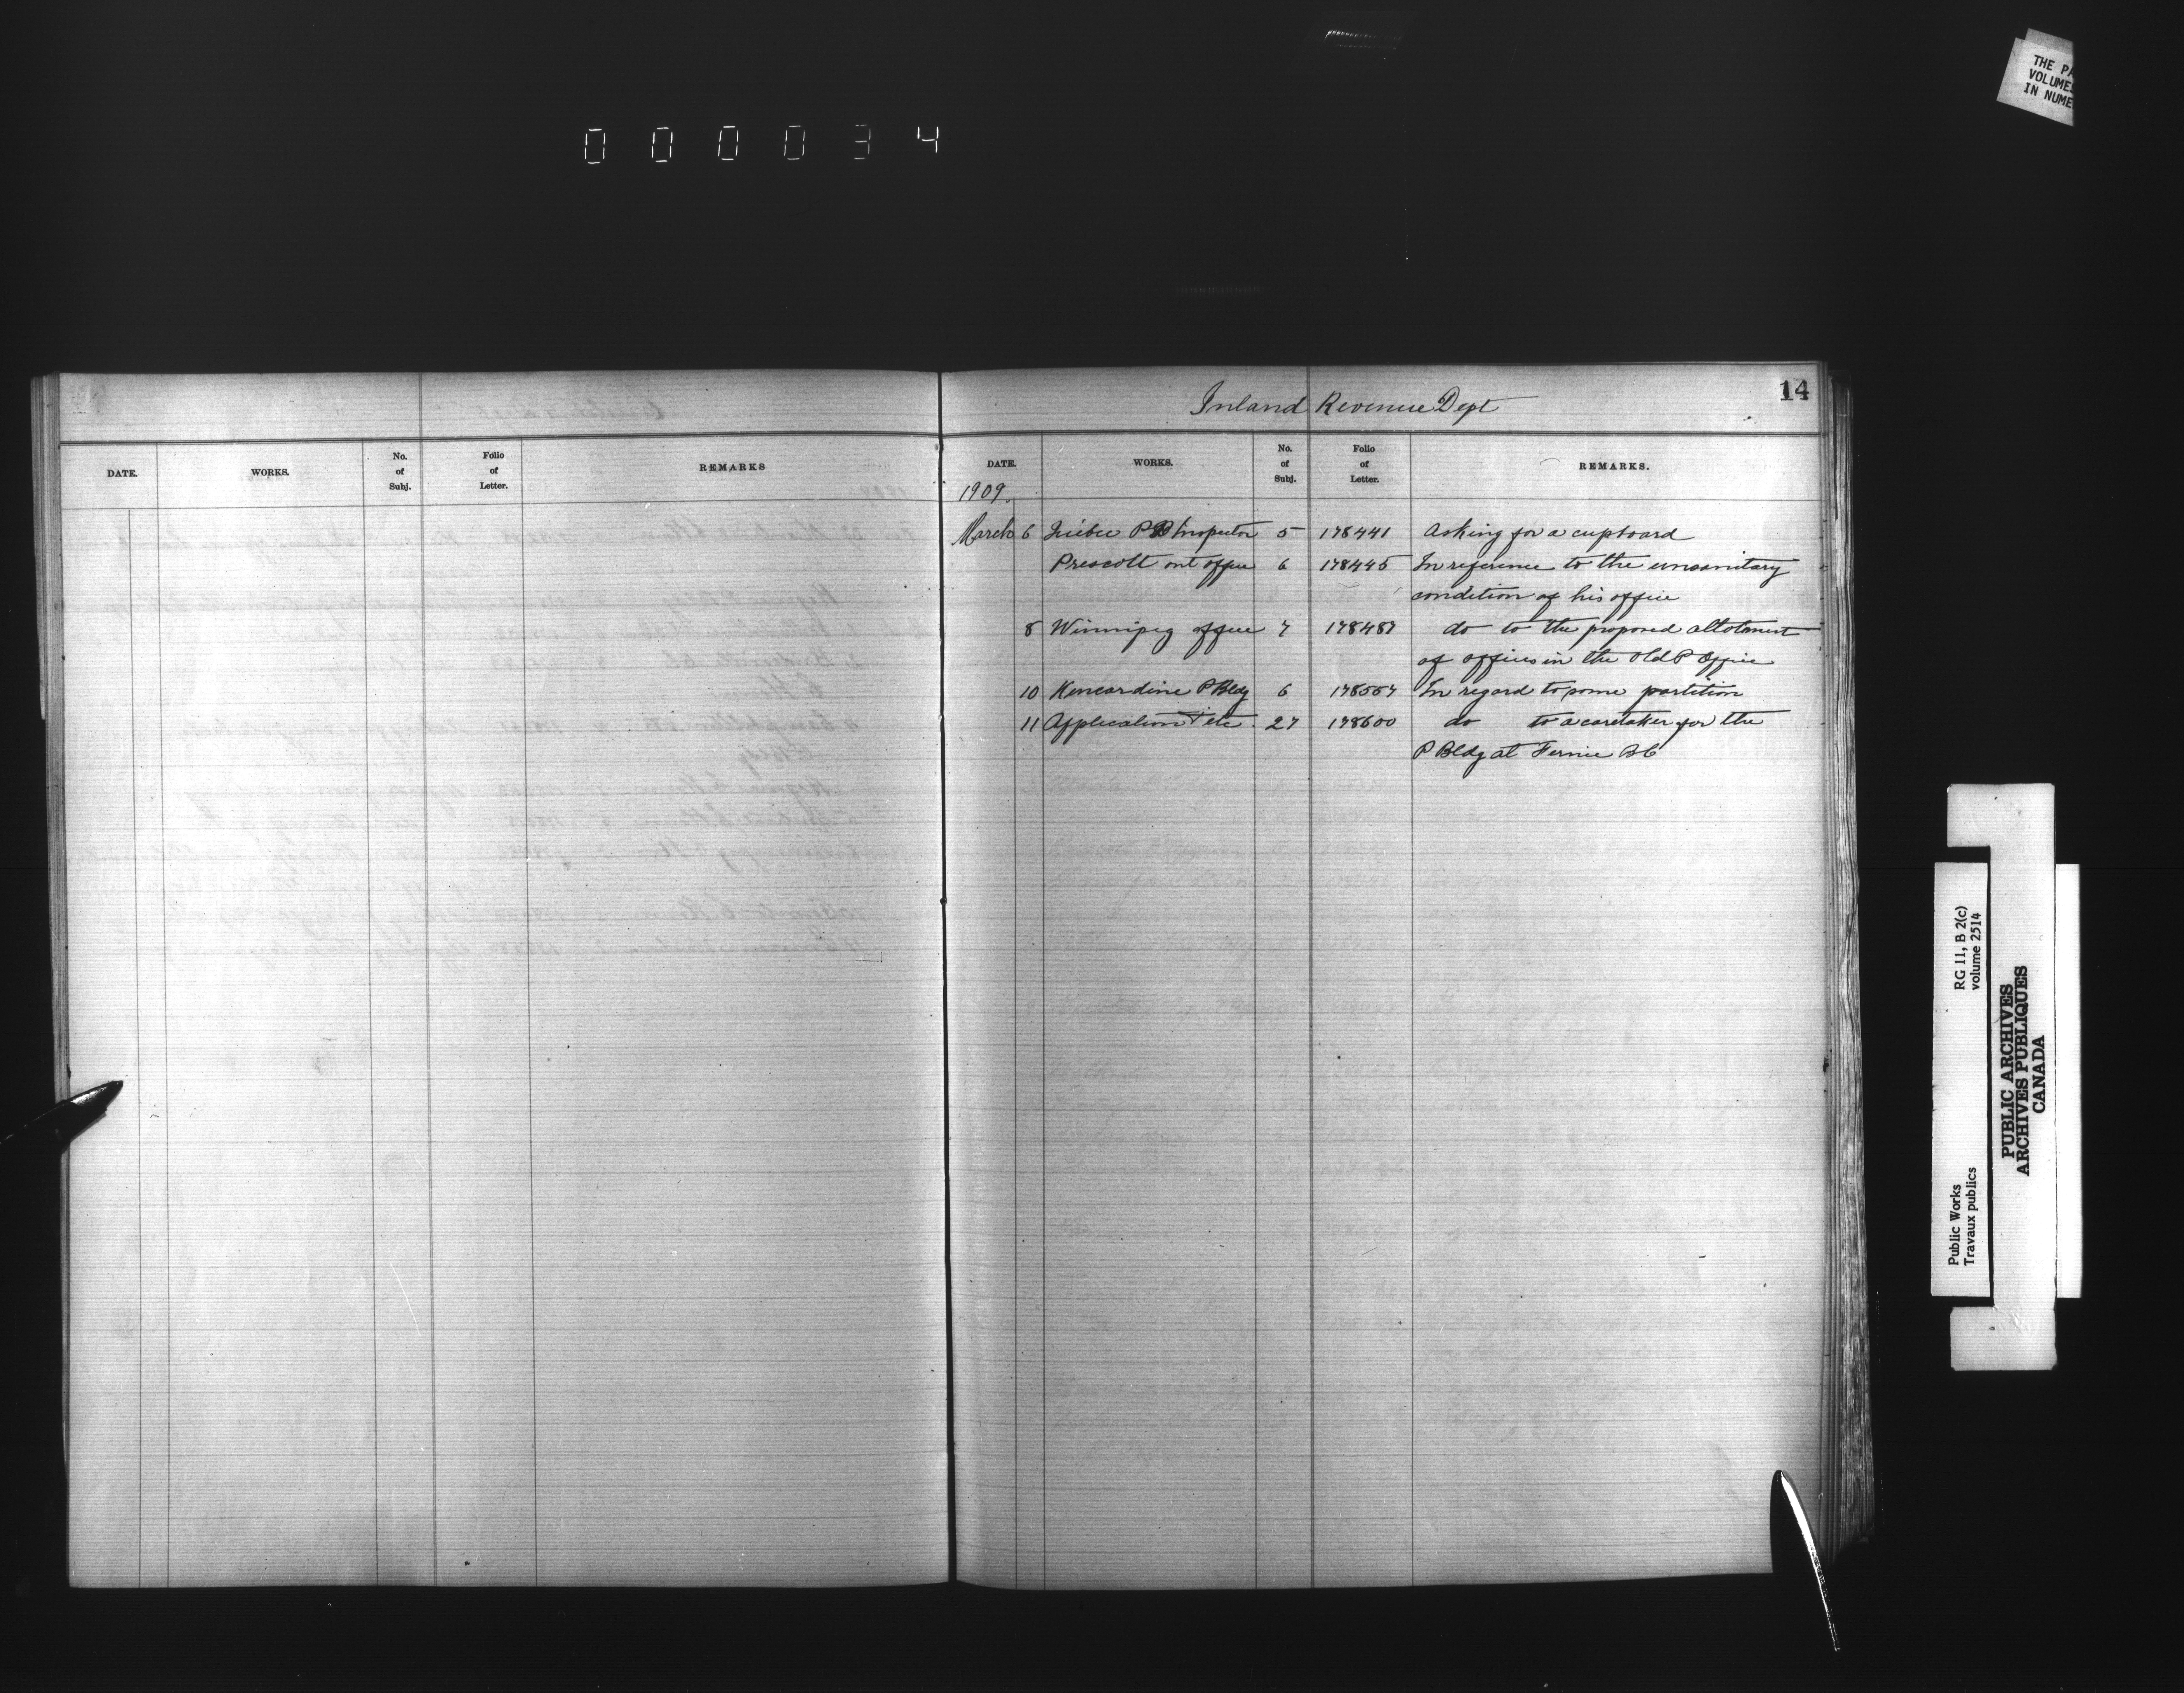 000034
THE PA
VOLUMES
IN NUME
14
Inland Revenue Dept
DATE. WORKS. No. of Subj. Folio of Letter. REMARKS
DATE. WORKS. No. of Subj. Folio of Letter. REMARKS.
1909
March 6 Quebec Inspector 5 178441 Asking for a cupboard
Prescott out office 6 178445 In reference to the unsanitary
condition of his office
8 Winnipeg office 7 178487 do to the proposed allotment
of offices in the old P Office
10 Kincardine P Bldg 6 178557 In regard to some partition
11 Application etc. 27 178600 do to a caretaker for the
P Bldg at Fernie BC
Public Works
Travaux publics
RG 11, B 2(c)
volume 2514
PUBLIC ARCHIVES
ARCHIVES PUBLIQUES
CANADA